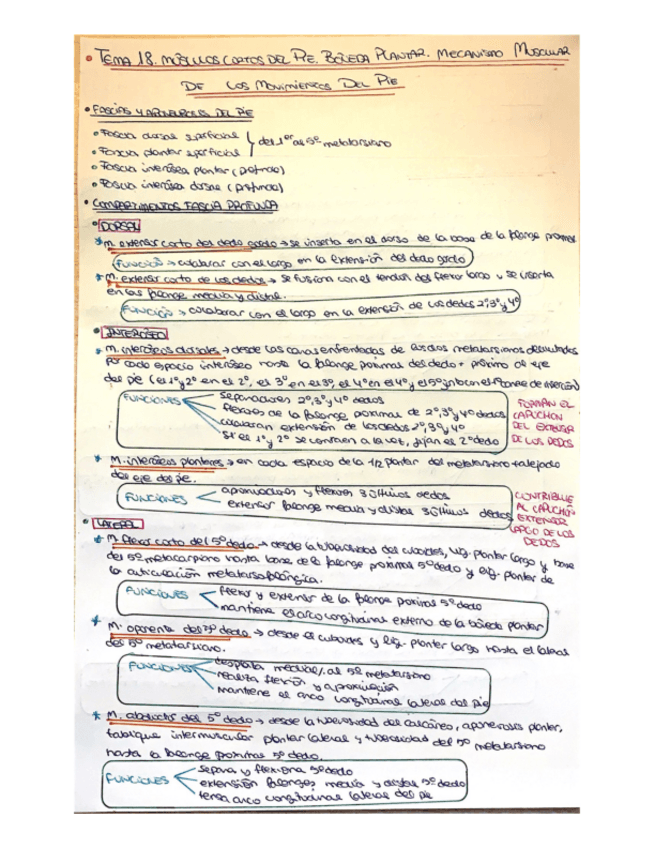 • TEMA 18. MÚSCULOS CORTOS DEL PIE. BÓVEDA PLANTAR. MECANISMO MUSCULAR
DE LOS MOVIMIENTOS DEL PIE
• FASCIAS Y APONEUROSIS DEL PIE
• Fascia dorsal superficial
• Fascia plantar superficial } del 1er al 5º metatarsiano
• Fascia interósea plantar (profunda)
• Fascia interósea dorsal (profunda)
• COMPARTIMENTOS FASCIA PROFUNDA
• DORSAL
* M. extensor corto del dedo gordo → se inserta en el dorso de la base de la falange proximal
FUNCIÓN → colaborar con el largo en la extensión del dedo gordo
* M. extensor corto de los dedos → se fusiona con el tendón del flexor largo y se inserta
en las falange media y distal.
FUNCIÓN → colaborar con el largo en la extensión de los dedos 2º, 3º y 4º
• INTERÓSEO
* M. interóseos dorsales → desde las caras enfrentadas de los dos metatarsianos
por cada espacio interóseo hasta la falange proximal del dedo + próximo al eje
del pie (el 1º y 2º en el 2º, el 3º en el 3º, el 4º en el 4º y el 5º
FUNCIONES
separadores 2º, 3º y 4º dedos
flexores de la falange proximal de 2º, 3º y 4º dedos
colaboran extensión de los dedos 2º, 3º y 4º
si el 1º y 2º se contraen a la vez, fijan el 2º dedo
FORMAN EL
CAPUCHÓN
DEL EXTENSOR
DE LOS DEDOS
* M. interóseos plantares → en cada espacio de la 1/2 plantar del metatarsiano + alejado
del eje del pie.
FUNCIONES
aproximadores y flexores 3 últimos dedos
extensor falange media y distal 3 últimos dedos
CONTRIBUYE
AL CAPUCHÓN
EXTENSOR
LARGO DE LOS
DEDOS
• LATERAL
* M. flexor corto del 5º dedo → desde la tuberosidad del cuboides, lig. plantar largo y base
del 5º metacarpiano hasta base de la falange proximal 5º dedo y lig. plantar de
la articulación metatarsofalángica.
FUNCIONES
flexor y extensor de la falange proximal 5º dedo
mantiene el arco longitudinal externo de la bóveda plantar
* M. oponente del 5º dedo → desde el cuboides y lig. plantar largo hasta el lateral
del 5º metatarsiano.
FUNCIONES
desplaza medial/. al 5º metatarsiano
realiza flexión y aproximación
mantiene el arco longitudinal lateral del pie
* M. abductor del 5º dedo → desde la tuberosidad del calcáneo, aponeurosis plantar,
tabique intermuscular plantar lateral y tuberosidad del 5º metatarsiano
hasta la falange proximal 5º dedo.
FUNCIONES
separa y flexiona 5º dedo
extensión falanges media y distal 5º dedo
tensa arco longitudinal lateral del pie